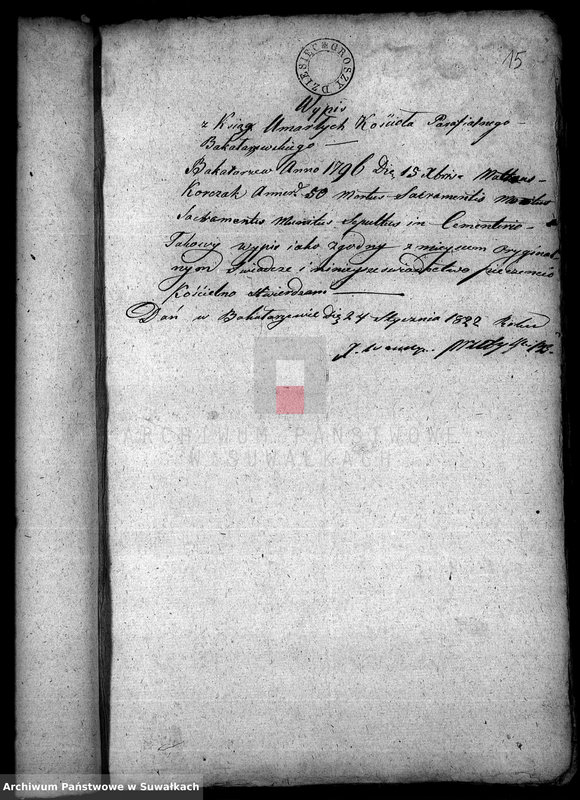 15
DZIESIĘĆ GROSZY
Wypis
z Księg Umarłych Kościoła Parafialnego
Bakałarzewskiego
Bakałarzew Anno 1796 Die 15 Xbris Matheus
Korczak Annor 50 Mortus Sacramentis
Sacramentis Munitus Sepultus in Cementerio
Takowy wypis jako zgodny z mieyscem Oryginal
nym świadcze i ninieysze swiadectwo pieczencio
Kościelno stwierdzam
Dań w Bakałarzewie dię 24 Stycznia 1822 Roku
ARCHIWUM PAŃSTWOWE
W SUWAŁKACH
Archiwum Państwowe w Suwałkach